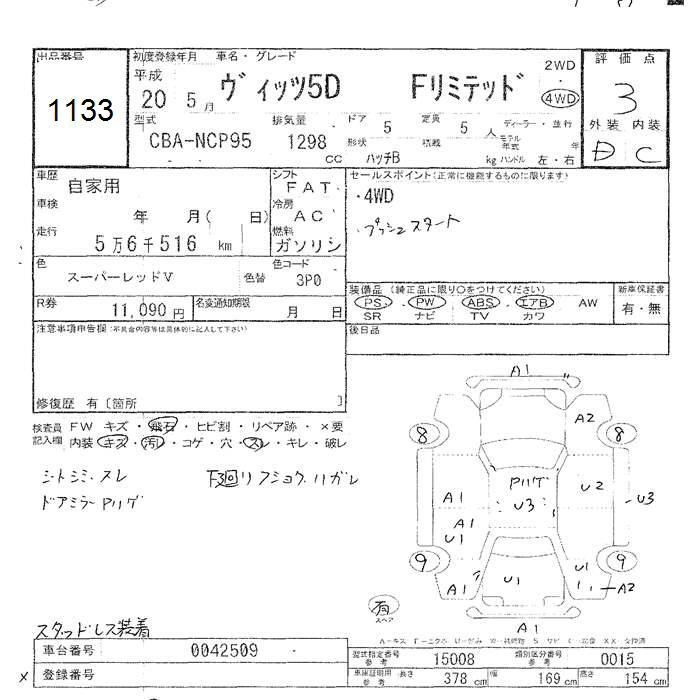 出品番号
1133
初度登録年月 車名・グレード
平成
20 5月 ヴィッツ5D Fリミテッド 2WD・4WD
型式 排気量 ドア 5 定員 5人 ディーラー・並行
CBA-NCP95 1298cc 形状 ハッチB 積載 kg モデル年式 年
ハンドル 左・右
評価点
3
外装 内装
D C
車歴 自家用
シフト FAT
車検 年 月( 日)
冷房 AC
走行 5万6千516km
燃料 ガソリン
色 スーパーレッドV 色替
色コード 3P0
R券 11,090円
名変通知期限 月 日
セールスポイント(正常に機能するものに限ります)
・4WD
・プッシュスタート
装備品(純正品に限り○をつけてください)
PS・PW・ABS・エアB・AW
SR ナビ TV カワ
新車保証書
有・無
後日品
注意事項申告欄(不具合内容等は具体的に記入して下さい)
修復歴 有〔箇所 〕
検査員 FW キズ・飛石・ヒビ割・リペア跡・×要
記入欄 内装・キズ・汚レ・コゲ・穴・スレ・キレ・破レ
シートシミ・スレ
ドアミラーPハゲ
A1
A2
8 8
Pハゲ
U3
U2
U3
A1
A1
U1
9 9
A1
U1
U1
A2
A1
有
スペア
スタッドレス装着
車台番号 0042509
登録番号
型式指定番号 参考 15008
類別区分番号 参考 0015
車庫証明用 参考 長さ 378cm 幅 169cm 高さ 154cm